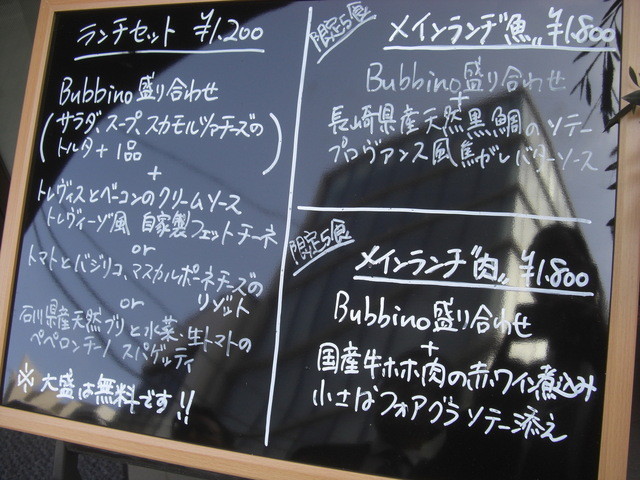 ランチセット ¥1.200
Bubbino盛り合わせ
(サラダ、スープ、スカモルツァチーズの
トルタ+1品)
+
トレヴィスとベーコンのクリームソース
トレヴィーゾ風 自家製フェットチーネ
or
トマトとバジリコ、マスカルポーネチーズの
リゾット
or
石川県産天然ブリと水菜、生トマトの
ペペロンチーノスパゲッティ
※大盛は無料です!!
限定5食
メインランチ"魚" ¥1.800
Bubbino盛り合わせ
+
長崎県産天然黒鯛のソテー
プロヴァンス風焦がしバターソース
限定5食
メインランチ"肉" ¥1.800
Bubbino盛り合わせ
+
国産牛ホホ肉の赤ワイン煮込み
小さなフォアグラソテー添え